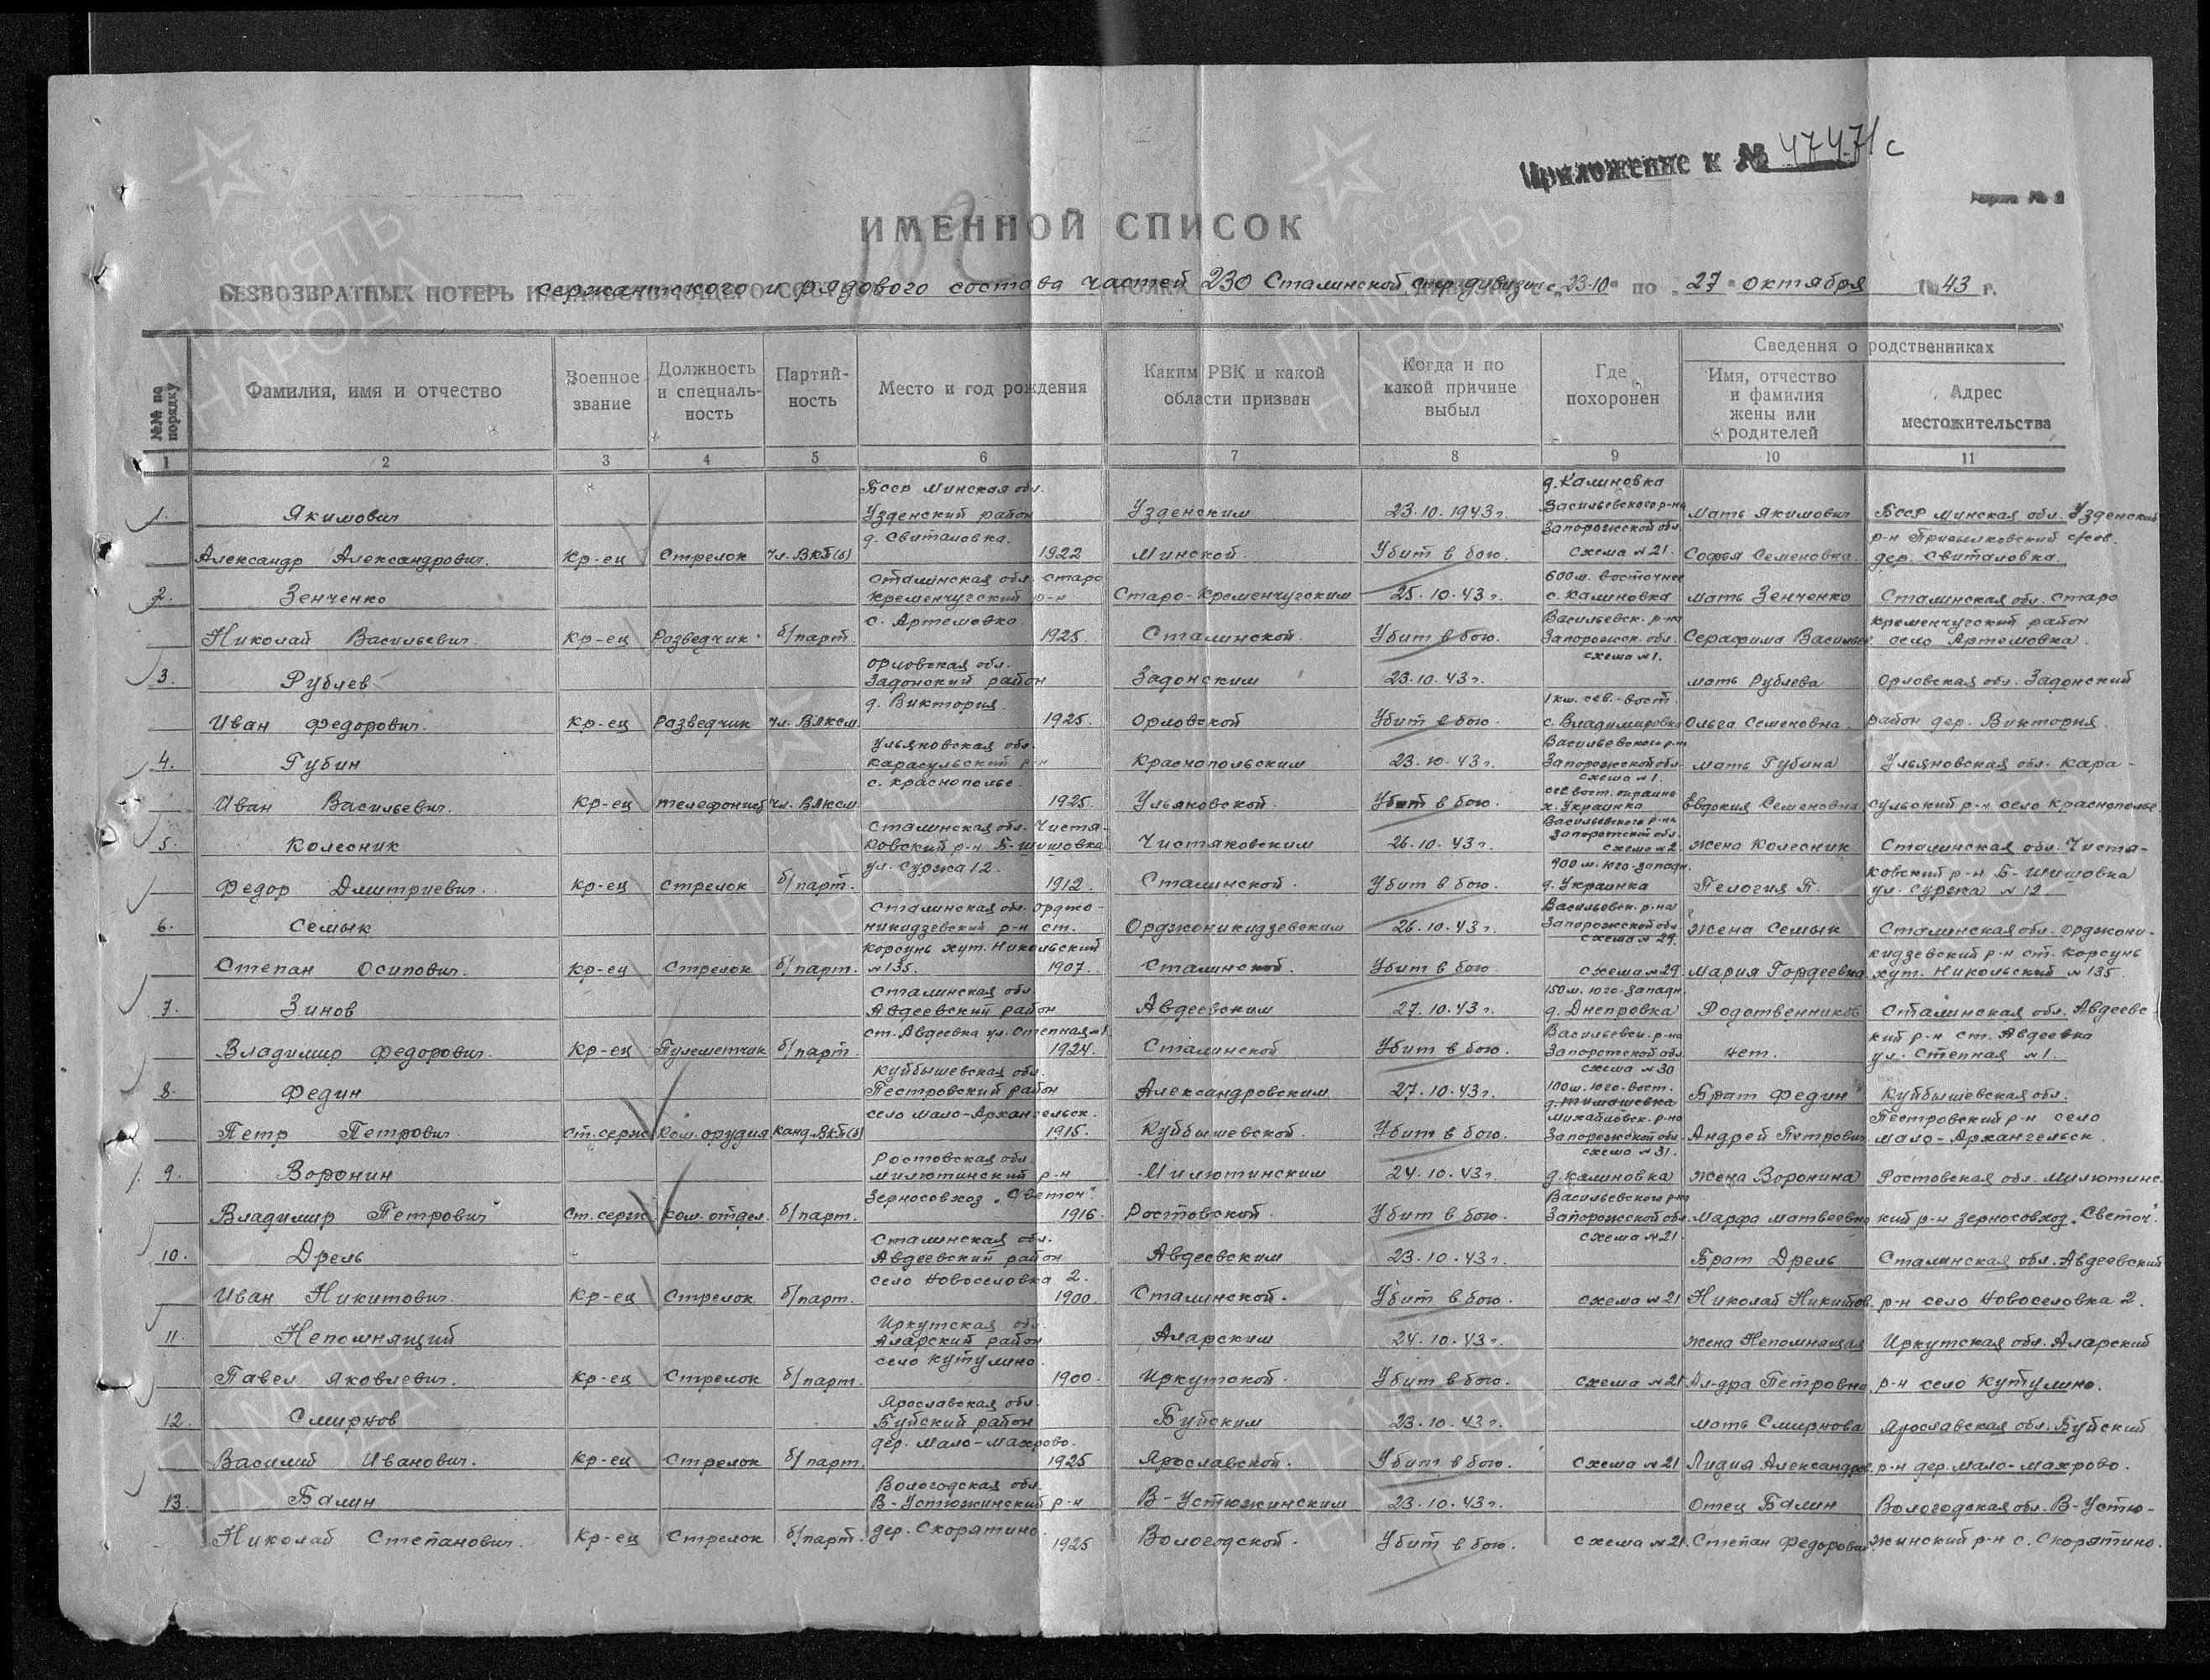 Приложение к № 47471с
Форма № 2
ИМЕННОЙ СПИСОК
БЕЗВОЗВРАТНЫХ ПОТЕРЬ сержантского и рядового состава частей 230 Сталинской стр. дивизии с „23.10" по „27" октября 1943 г.
№№ по порядку
Фамилия, имя и отчество
Военное звание
Должность и специаль-ность
Партий-ность
Место и год рождения
Каким РВК и какой области призван
Когда и по какой причине выбыл
Где похоронен
Сведения о родственниках
Имя, отчество и фамилия жены или родителей
Адрес местожительства
1 2 3 4 5 6 7 8 9 10 11
1. Якимович Александр Александрович. Кр-ец Стрелок чл. ВКП(б) БССР Минская обл. Узденский район д. Свиталовка. 1922 Узденским Минской. 23.10.1943г. Убит в бою. д. Калиновка Васильевского р-на Запорожской обл. схема №21. мать Якимович Софья Семеновна. БССР Минская обл. Узденский р-н дер. Свиталовка.
2. Зенченко Николай Васильевич. Кр-ец Разведчик б/парт. Сталинская обл. Старо Кременчугский р-н с. Артемовка. 1925. Старо-Кременчугским Сталинской. 25.10.43г. Убит в бою. 600м. восточнее с. Калиновка Васильевск. р-на Запорожск. обл. схема №1. мать Зенченко Серафима Васильев. Сталинская обл. Старо Кременчугский район село Артемовка.
3. Рублев Иван Федорович. Кр-ец Разведчик чл. ВЛКСМ Орловская обл. Задонский район д. Виктория. 1925. Задонским Орловской 23.10.43г. Убит в бою. 1км. сев.-вост. с. Владимировка Васильевского р-на Запорожской обл. схема №1. мать Рублева Ольга Семеновна. Орловская обл. Задонский район дер. Виктория.
4. Губин Иван Васильевич. Кр-ец телефонист чл. ВЛКСМ Ульяновская обл. Карасульский р-н с. Краснополье. 1925. Краснопольским Ульяновской. 23.10.43г. Убит в бою. сев. вост. окраина х. Украинка Васильевского р-на Запорожской обл. схема №2 мать Губина Евдокия Семеновна. Ульяновская обл. Кара-сульский р-н село Краснополье
5. Колесник Федор Дмитриевич. Кр-ец Стрелок б/парт. Сталинская обл. Чистя-ковский р-н Б-Шишовка ул. Суржа 12. 1912. Чистяковским Сталинской. 26.10.43г. Убит в бою. 900м. юго-западн. д. Украинка Васильевск. р-на Запорожской обл. схема №29. жена Колесник Пелогия П. Сталинская обл. Чистя-ковский р-н Б-Шишовка ул. Суржа №12
6. Семык Степан Осипович. Кр-ец Стрелок б/парт. Сталинская обл. Орджо-никидзевский р-н ст. Корсунь хут. Никольский №135. 1907. Орджоникидзевским Сталинской. 26.10.43г. Убит в бою. схема №29. жена Семык Мария Гордеевна Сталинская обл. Орджони-кидзевский р-н ст. Корсунь хут. Никольский №135.
7. Зинов Владимир Федорович. Кр-ец Пулеметчик б/парт. Сталинская обл. Авдеевский район ст. Авдеевка ул. Степная №1 1924. Авдеевским Сталинской 27.10.43г. Убит в бою. 150м. юго-западн. д. Днепровка Васильевск. р-на Запорожской обл. схема №30 Родственников нет. Сталинская обл. Авдеевс-кий р-н ст. Авдеевка ул. Степная №1.
8. Федин Петр Петрович. Ст. серж Ком. орудия Канд. ВКП(б) Куйбышевская обл. Пестровский район село Мало-Архангельск. 1915. Александровским Куйбышевской. 27.10.43г. Убит в бою. 100м. юго-вост. д. Тимошевка Михайловск. р-на Запорожской обл. схема №31. Брат Федин Андрей Петрович Куйбышевская обл. Пестровский р-н село Мало-Архангельск.
9. Воронин Владимир Петрович Ст. серж Ком. отдел. б/парт. Ростовская обл. Милютинский р-н Зерносовхоз „Светоч". 1916. Милютинским Ростовской. 24.10.43г Убит в бою. д. Калиновка Васильевского р-на Запорожской обл. схема №21. жена Воронина Марфа Матвеевна Ростовская обл. Милютинс-кий р-н зерносовхоз „Светоч".
10. Дрель Иван Никитович. Кр-ец Стрелок б/парт. Сталинская обл. Авдеевский район село Новоселовка 2. 1900. Авдеевским Сталинской. 23.10.43г. Убит в бою. схема №21 Брат Дрель Николай Никитов. Сталинская обл. Авдеевский р-н село Новоселовка 2.
11. Непомнящий Павел Яковлевич. Кр-ец Стрелок б/парт. Иркутская обл. Аларский район село Кутулино. 1900. Аларским Иркутской. 24.10.43г. Убит в бою. схема №21 жена Непомнящая Ал-дра Петровна Иркутская обл. Аларский р-н село Кутулино.
12. Смирнов Василий Иванович. Кр-ец Стрелок б/парт. Ярославская обл. Буйский район дер. Мало-Махрово. 1925 Буйским Ярославской. 23.10.43г. Убит в бою. схема №21 мать Смирнова Лидия Александров. Ярославская обл. Буйский р-н дер. Мало-Махрово.
13. Балин Николай Степанович. Кр-ец Стрелок б/парт. Вологодская обл. В-Устюжинский р-н дер. Скорятино. 1925 В-Устюжинским Вологодской. 23.10.43г. Убит в бою. схема №21. Отец Балин Степан Федорович Вологодская обл. В-Устю-жинский р-н с. Скорятино.
ПАМЯТЬ НАРОДА